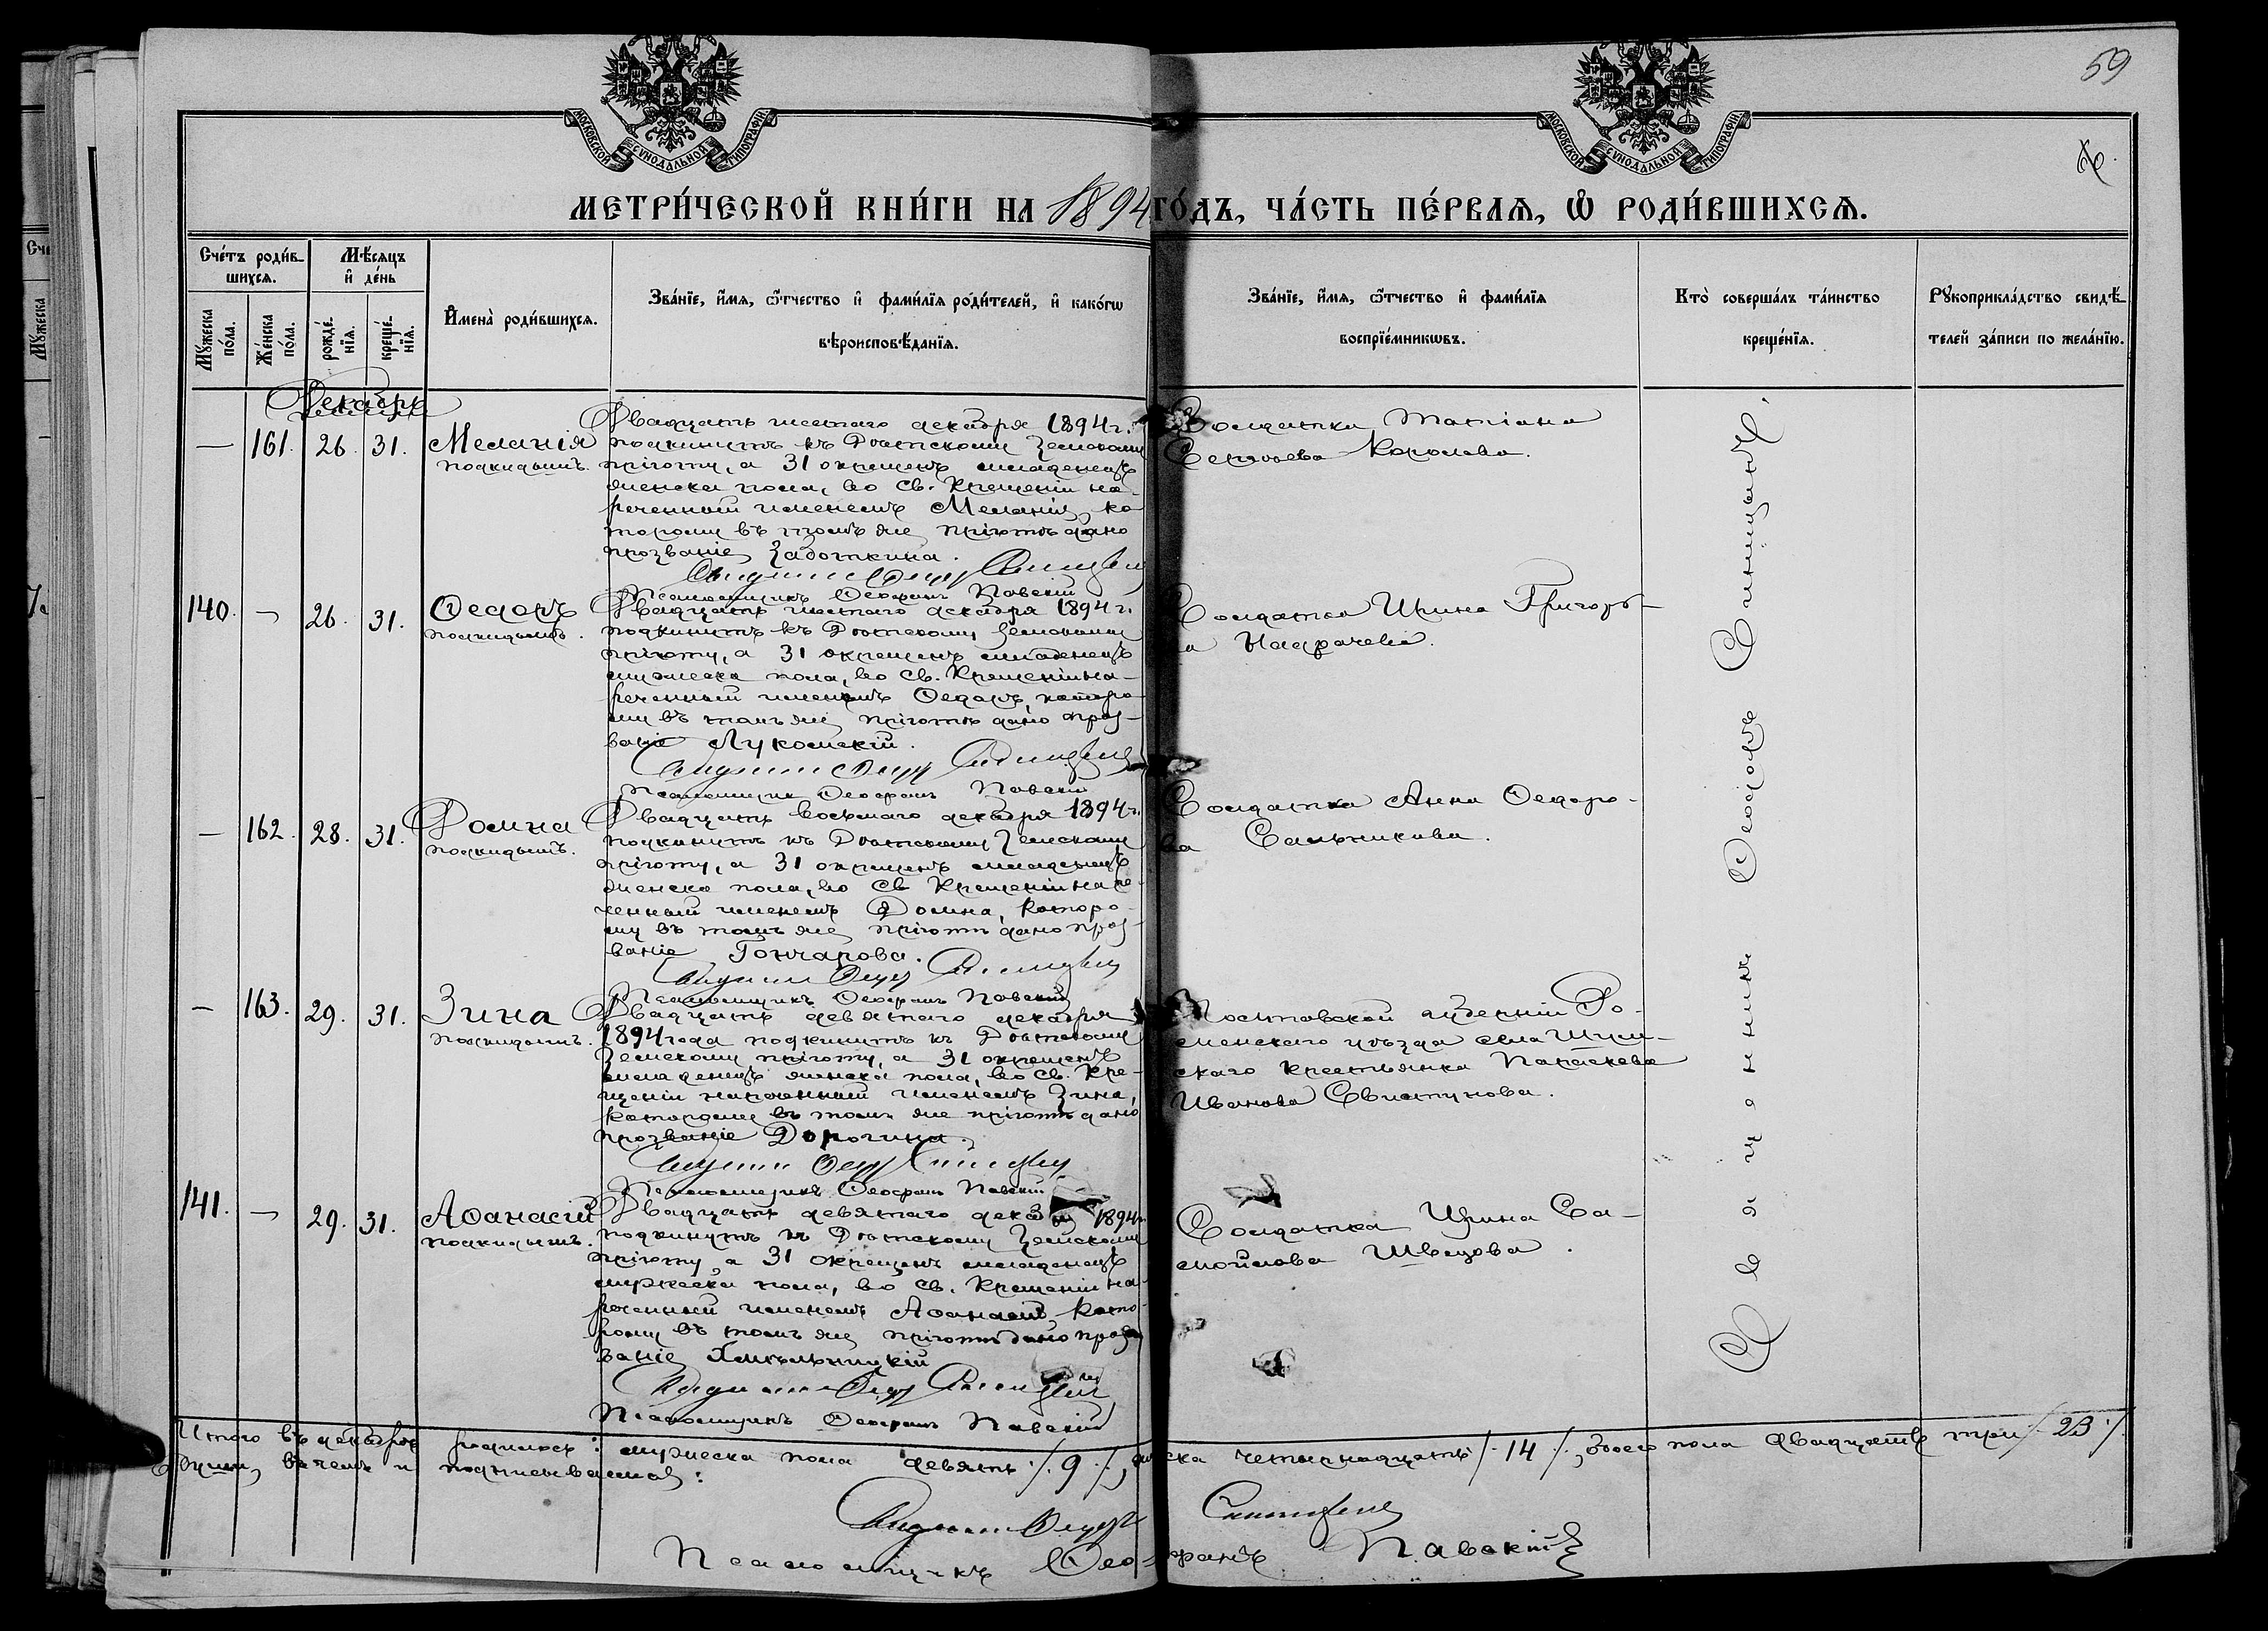 59
МОСКОВСКОЙ СУНОДАЛЬНОЙ ТИПОГРАФІИ
МОСКОВСКОЙ СУНОДАЛЬНОЙ ТИПОГРАФІИ
МЕТРИ́ЧЕСКОЙ КНИ́ГИ НА 1894 ГО́ДЪ, ЧА́СТЬ ПЕ́РВАѦ, Ѡ҆ РОДИ́ВШИХСѦ.
Сче́тъ роди́в-
шихсѧ.
Мѣ́сѧцъ
и҆ де́нь
Мꙋ́жеска по́ла.
Же́нска по́ла.
рожде́-
нїѧ.
креще́-
нїѧ.
И҆мена̀ роди́вшихсѧ.
Зва́нїе, и҆́мѧ, ѻ҆́тчество и҆ фами́лїѧ роди́телей, и҆ како́гѡ
вѣроисповѣ́данїѧ.
Зва́нїе, и҆́мѧ, ѻ҆́тчество и҆ фами́лїѧ
воспрїе́мникѡвъ.
Кто̀ соверша́лъ та́инство
креще́нїѧ.
Рꙋкоприкла́дство свидѣ́-
телей за́писи по жела́нїю.
Декабрь
— 161. 26. 31. Меланія
подкидышъ.
Двадцать шестаго декабря 1894 г.
подкинутъ къ Дѣтскому Земскому
пріюту, а 31 окрещенъ младенецъ
женска пола, во Св. Крещеніи на-
реченный именемъ Меланія, ко
торому въ томъ же пріютѣ дано
прозваніе Заботкина.
Псаломщикъ Ѳеофанъ Павскій
Солдатка Татіана
Сергѣева Королева.
140. — 26. 31. Ѳедоръ
подкидышъ.
Двадцать шестаго декабря 1894 г.
подкинутъ къ Дѣтскому Земскому
пріюту, а 31 окрещенъ младенецъ
мужеска пола, во Св. Крещеніи на-
реченный именемъ Ѳедоръ, которо
му въ томъ же пріютѣ дано проз-
ваніе Лукомскій.
Псаломщикъ Ѳеофанъ Павскій
Солдатка Ирина Григорь-
— 162. 28. 31. Домна
подкидышъ.
Двадцать восьмаго декабря 1894 г.
подкинутъ къ Дѣтскому Земскому
пріюту, а 31 окрещенъ младенецъ
женска пола, во Св Крещеніи наре-
ченный именемъ Домна, которо-
му въ томъ же пріютѣ дано проз-
ваніе Гончарова.
Псаломщикъ Ѳеофанъ Павскій
Солдатка Анна Ѳедоро-
ва Сальникова.
— 163. 29. 31. Зина
подкидышъ.
Двадцать девятаго декабря
1894 года подкинутъ къ Дѣтскому
Земскому пріюту, а 31 окрещенъ
младенецъ женска пола, во Св. Кре-
щеніи нареченный именемъ Зина,
которому въ томъ же пріютѣ дано
прозваніе Дорогина.
Псаломщикъ Ѳеофанъ Павскій
Полтавской губерніи Ро-
менскаго уѣзда села
скаго крестьянка Параскева
Иванова Свистунова.
141. — 29. 31. Аѳанасій
подкидышъ.
Двадцать девятаго декабря 1894 г.
подкинутъ къ Дѣтскому Земскому
пріюту, а 31 окрещенъ младенецъ
мужеска пола, во Св. Крещеніи на-
реченный именемъ Аѳанасій, кото-
рому въ томъ же пріютѣ дано проз
ваніе Хмѣльницкій
Псаломщикъ Ѳеофанъ Павскій
Солдатка Ирина Са-
мойлова Швецова.
Священникъ Ѳеодоръ Синицынъ.
Итого въ декабрѣ родилось: мужеска пола девять /9/, женска четырнадцать /14/, обоего пола двадцать три /23/
души, въ чемъ и подписываемся:
Псаломщикъ Ѳеофанъ Павскій